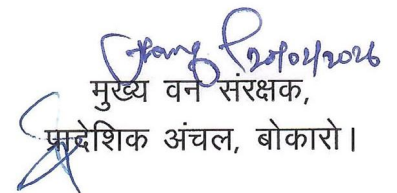 20/02/2026
मुख्य वन संरक्षक,
प्रादेशिक अंचल, बोकारो।